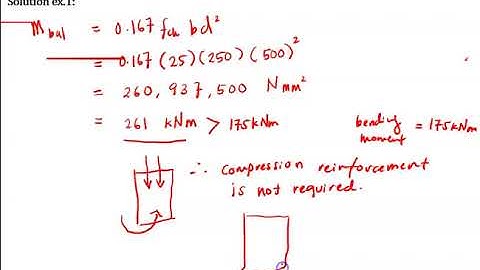 Solution ex.1:
M bal = 0.167 fck bd²
= 0.167 (25) (250) (500)²
= 260, 937, 500 Nmm²
= 261 kNm > 175 kNm
bending moment = 175 kNm
∴ compression reinforcement
is not required.